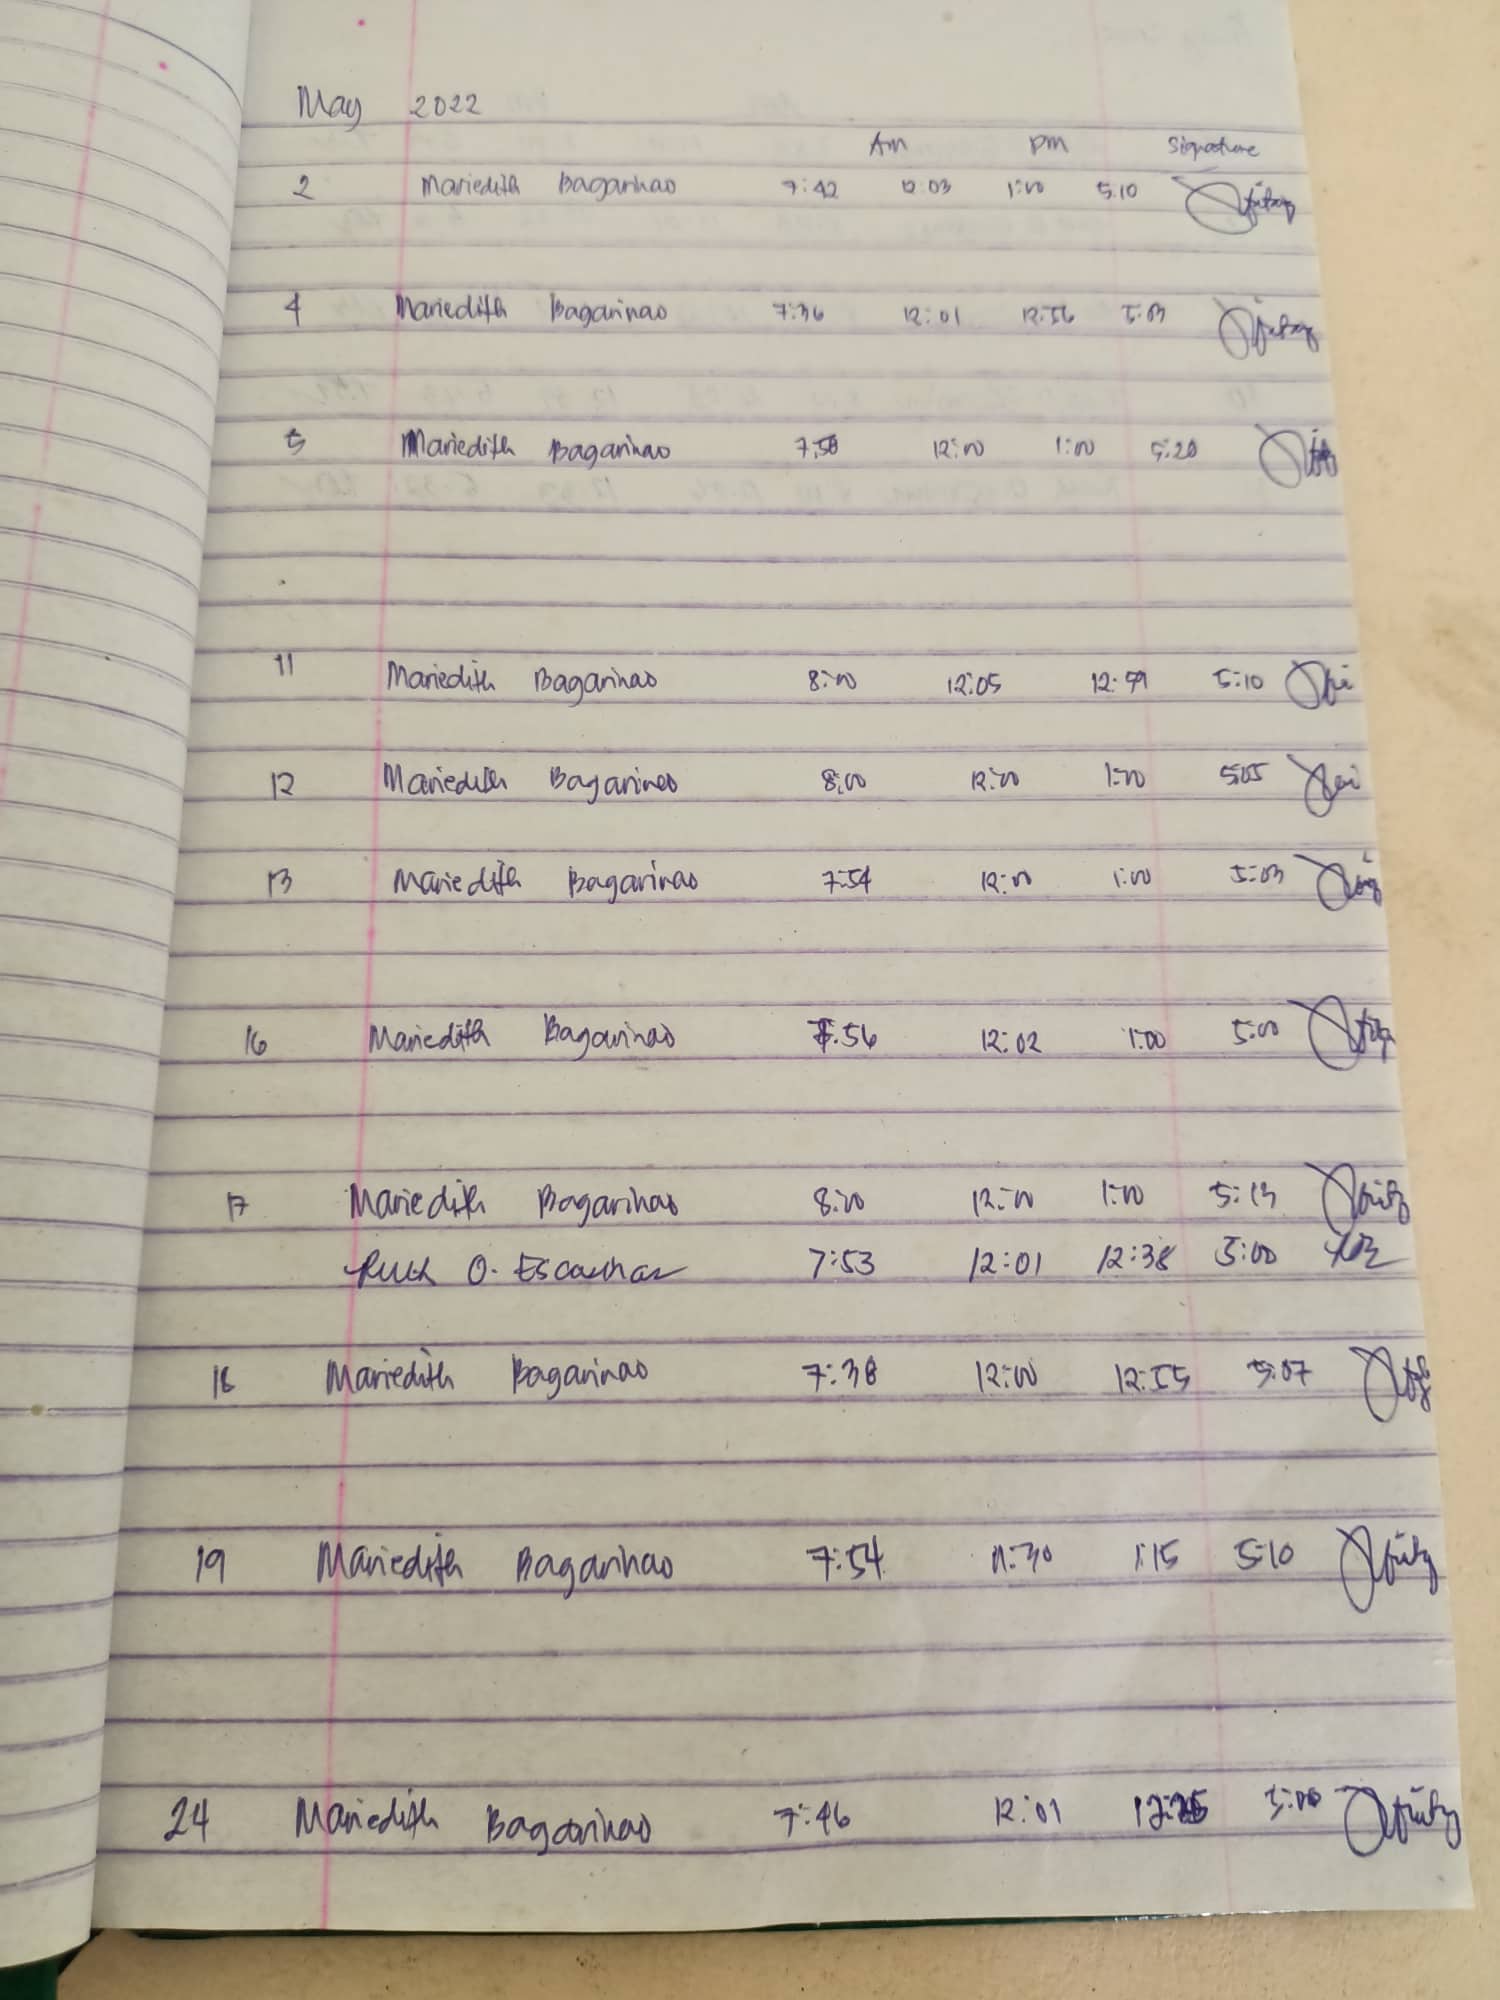 May 2022
Am Pm Signature
2 Mariedith Bagarinao 7:42 12:03 1:00 5:10
4 Mariedith Bagarinao 7:36 12:01 12:56 5:03
5 Mariedith Bagarinao 7:58 12:00 1:00 5:20
11 Mariedith Bagarinao 8:00 12:05 12:59 5:10
12 Mariedith Bagarinao 8:00 12:00 1:00 5:05
13 Mariedith Bagarinao 7:54 12:00 1:00 5:03
16 Mariedith Bagarinao 7:56 12:02 1:00 5:00
17 Mariedith Bagarinao 8:00 12:00 1:00 5:13
Ruth O. 7:53 12:01 12:38 5:00
18 Mariedith Bagarinao 7:38 12:00 12:55 5:07
19 Mariedith Bagarinao 7:54 11:30 1:15 5:10
24 Mariedith Bagarinao 7:46 12:01 5:00